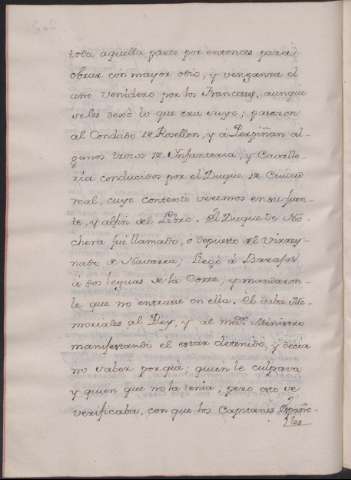 toda aquella parte por entonces para
obrar con mayor brio, y vengarse el
año venidero por los Franceses, aunque
se les dexó lo que era suyo; pasaron
al Condado de Rosellon, y á Perpiñan al-
gunos tercios de Infanteria, y Cavalle-
ria conducidos por el Duque de Ciudad
real, cuyo contexto veremos en su fuen-
te, y al fin del Libro. El Duque de No-
chera fue llamado, o depuesto del Virrey-
nato de Navarra; llegó á Barajas,
á dos leguas de la Corte, y mandaron-
le que no entrase en ella. El daba Me-
moriales al Rey, y al mismo Ministro
manifestando el estar detenido, y decia
no saber por qué; quien le culpava
y quien que no la tenia, pero esto se
verificaba, con que los Capitanes Españo-
les